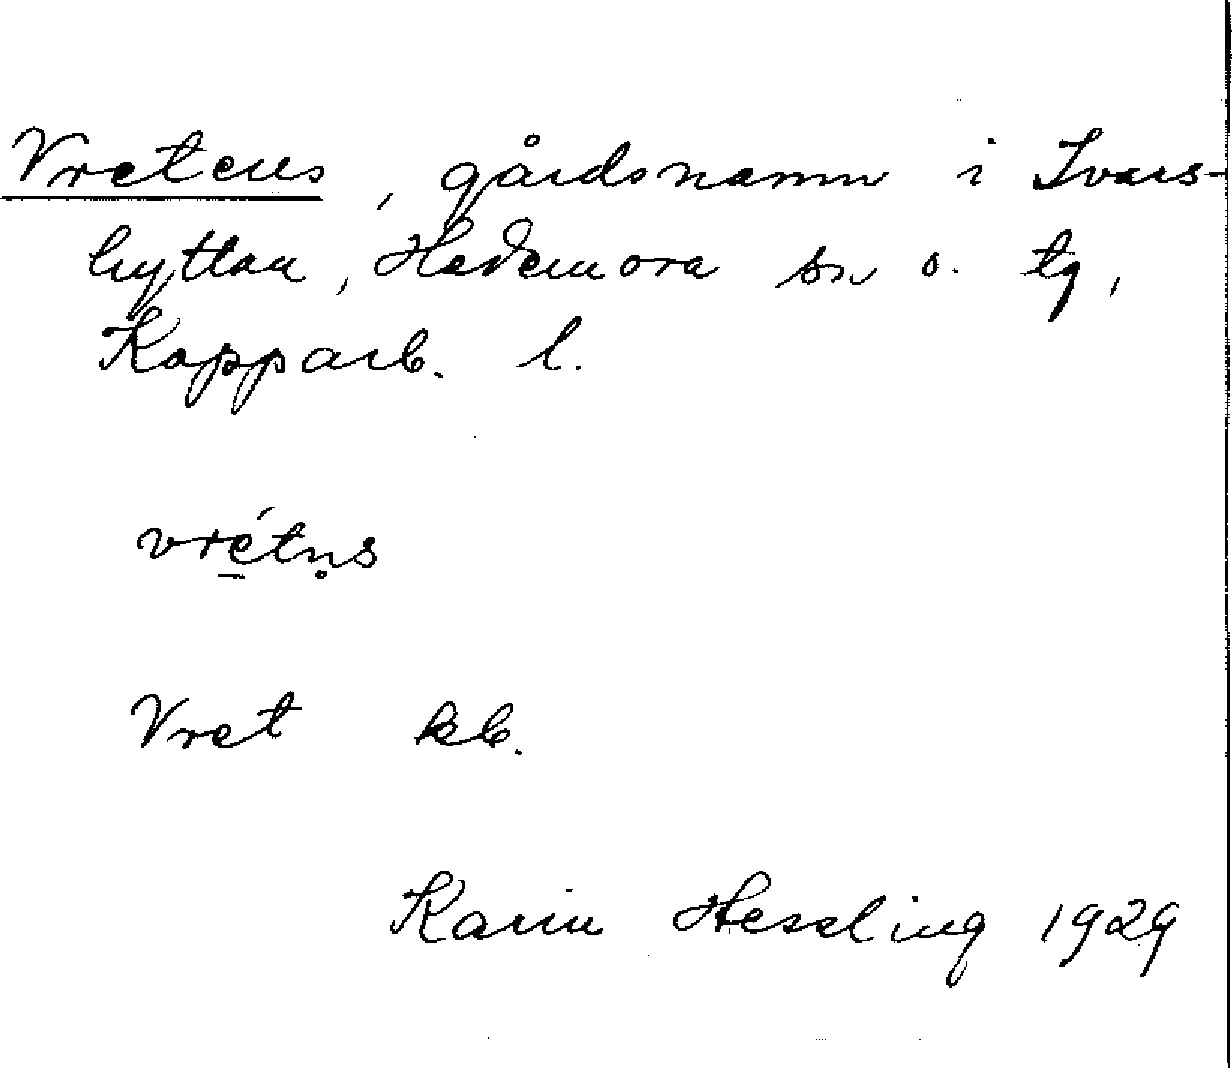 Vretens, gårdsnamn i Ivars-
hyttan, Hedemora sn o. tg,
Kopparb. l.
vre̱´tn̥s
Vret kb.
Karin Hessling 1929